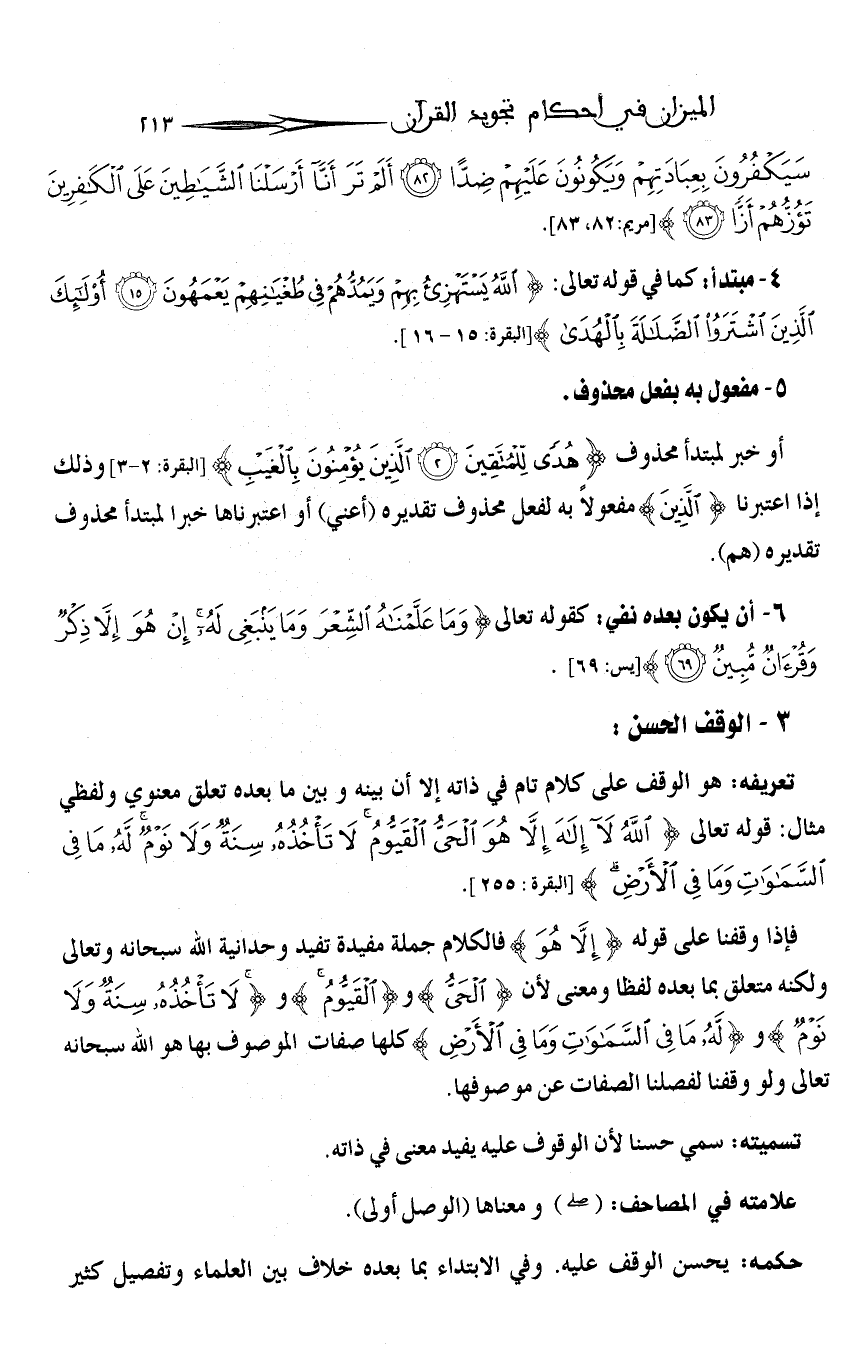 الميزان في أحكام تجويد القرآن ٢١٣
سَيَكْفُرُونَ بِعِبَادَتِهِمْ وَيَكُونُونَ عَلَيْهِمْ ضِدًّا ﴿٨٢﴾ أَلَمْ تَرَ أَنَّآ أَرْسَلْنَا ٱلشَّيَٰطِينَ عَلَى ٱلْكَٰفِرِينَ
تَؤُزُّهُمْ أَزًّا ﴿٨٣﴾ ﴾ [مريم: ٨٢، ٨٣].
٤- مبتدأ: كما في قوله تعالى: ﴿ ٱللَّهُ يَسْتَهْزِئُ بِهِمْ وَيَمُدُّهُمْ فِى طُغْيَٰنِهِمْ يَعْمَهُونَ ﴿١٥﴾ أُو۟لَٰٓئِكَ
ٱلَّذِينَ ٱشْتَرَوُا۟ ٱلضَّلَٰلَةَ بِٱلْهُدَىٰ ﴾ [البقرة: ١٥ – ١٦ ].
٥- مفعول به بفعل محذوف.
أو خبر لمبتدأ محذوف ﴿ هُدًى لِّلْمُتَّقِينَ ﴿٢﴾ ٱلَّذِينَ يُؤْمِنُونَ بِٱلْغَيْبِ ﴾ [البقرة: ٢-٣] وذلك
إذا اعتبرنا ﴿ ٱلَّذِينَ ﴾ مفعولاً به لفعل محذوف تقديره (أعني) أو اعتبرناها خبرا لمبتدأ محذوف
تقديره (هم).
٦- أن يكون بعده نفي: كقوله تعالى ﴿ وَمَا عَلَّمْنَٰهُ ٱلشِّعْرَ وَمَا يَنۢبَغِى لَهُۥٓ ۚ إِنْ هُوَ إِلَّا ذِكْرٌ
وَقُرْءَانٌ مُّبِينٌ ﴿٦٩﴾ ﴾ [يس: ٦٩] .
٣ - الوقف الحسن :
تعريفه: هو الوقف على كلام تام في ذاته إلا أن بينه و بين ما بعده تعلق معنوي ولفظي
مثال: قوله تعالى ﴿ ٱللَّهُ لَآ إِلَٰهَ إِلَّا هُوَ ٱلْحَىُّ ٱلْقَيُّومُ ۚ لَا تَأْخُذُهُۥ سِنَةٌ وَلَا نَوْمٌ ۚ لَّهُۥ مَا فِى
ٱلسَّمَٰوَٰتِ وَمَا فِى ٱلْأَرْضِ ۗ ﴾ [البقرة : ٢٥٥ ].
فإذا وقفنا على قوله ﴿ إِلَّا هُوَ ﴾ فالكلام جملة مفيدة تفيد وحدانية الله سبحانه وتعالى
ولكنه متعلق بما بعده لفظا ومعنى لأن ﴿ ٱلْحَىُّ ﴾ و ﴿ ٱلْقَيُّومُ ۚ ﴾ و ﴿ ۚ لَا تَأْخُذُهُۥ سِنَةٌ وَلَا
نَوْمٌ ﴾ و ﴿ لَّهُۥ مَا فِى ٱلسَّمَٰوَٰتِ وَمَا فِى ٱلْأَرْضِ ﴾ كلها صفات الموصوف بها هو الله سبحانه
تعالى ولو وقفنا لفصلنا الصفات عن موصوفها.
تسميته: سمي حسنا لأن الوقوف عليه يفيد معنى في ذاته.
علامته في المصاحف: ( ۖ ) و معناها (الوصل أولى).
حكمه: يحسن الوقف عليه. وفي الابتداء بما بعده خلاف بين العلماء وتفصيل كثير